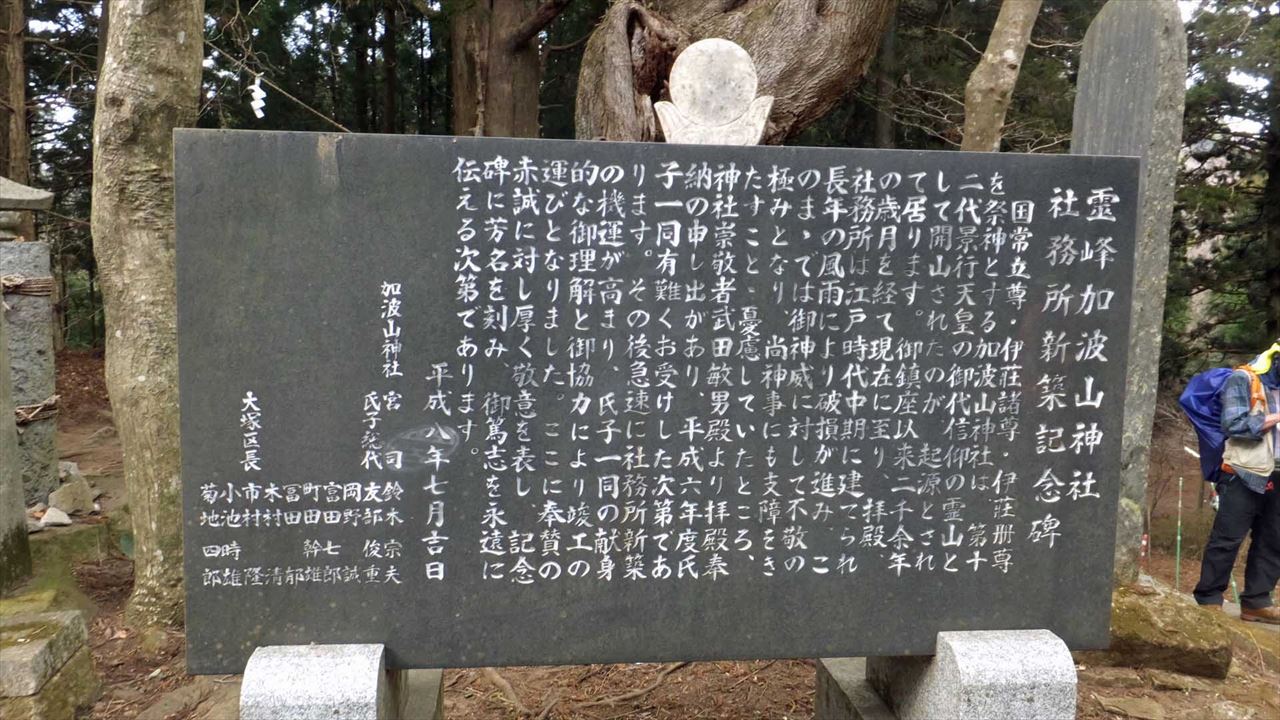 霊峰加波山神社
社務所新築記念碑
国常立尊・伊荘諸尊・伊荘册尊
を祭神とする加波山神社は、第十
二代景行天皇の御代信仰の霊山と
して開山されたのが、起源とされ
て居ります。御鎮座以来二千余年
の歳月を経て現在に至り、拝殿
社務所は江戸時代中期に建てられ
長年の風雨により破損が進み、こ
のまゝでは御神威に対して不敬の
極みとなり、尚神事にも支障をき
たすこと、憂慮していたところ、
神社崇敬者武田敏男殿より拝殿奉
納の申し出があり、平成六年度氏
子一同有難くお受けした次第であ
ります。その後急速に社務所新築
の機運が高まり、氏子一同の献身
的な御理解と御協力により竣工の
運びとなりました。ここに奉賛の
赤誠に対し厚く敬意を表し、記念
碑に芳名を刻み、御篤志を永遠に
伝える次第であります。
平成八年七月吉日
加波山神社 宮司 鈴木宗夫
氏子総代 友部俊重
岡野誠
富田七郎
町田幹雄
冨田郁
木村清
大塚区長 市村隆
小池時雄
菊地四郎